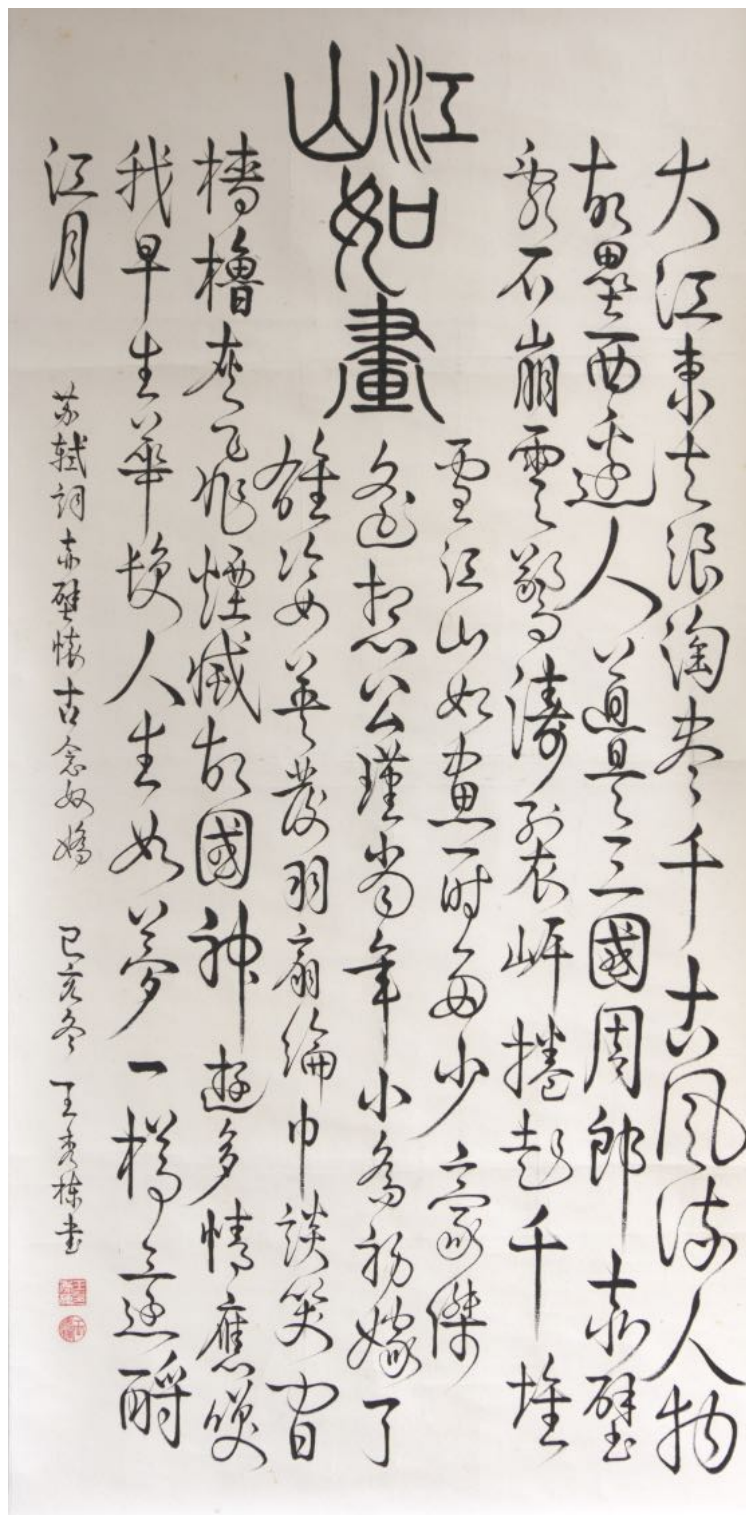 江山如畫
大江東去浪淘尽千古風流人物
故壘西邊人道是三國周郎赤壁
亂石崩雲驚濤裂岸捲起千堆
雪江山如畫一时多少豪傑
遙想公瑾當年小喬初嫁了
雄姿英發羽扇綸巾談笑間
檣櫓灰飛煙滅故國神遊多情應笑
我早生華髮人生如夢一樽還酹
江月
苏軾詞赤壁懷古念奴嬌 己亥冬 王秀栋书